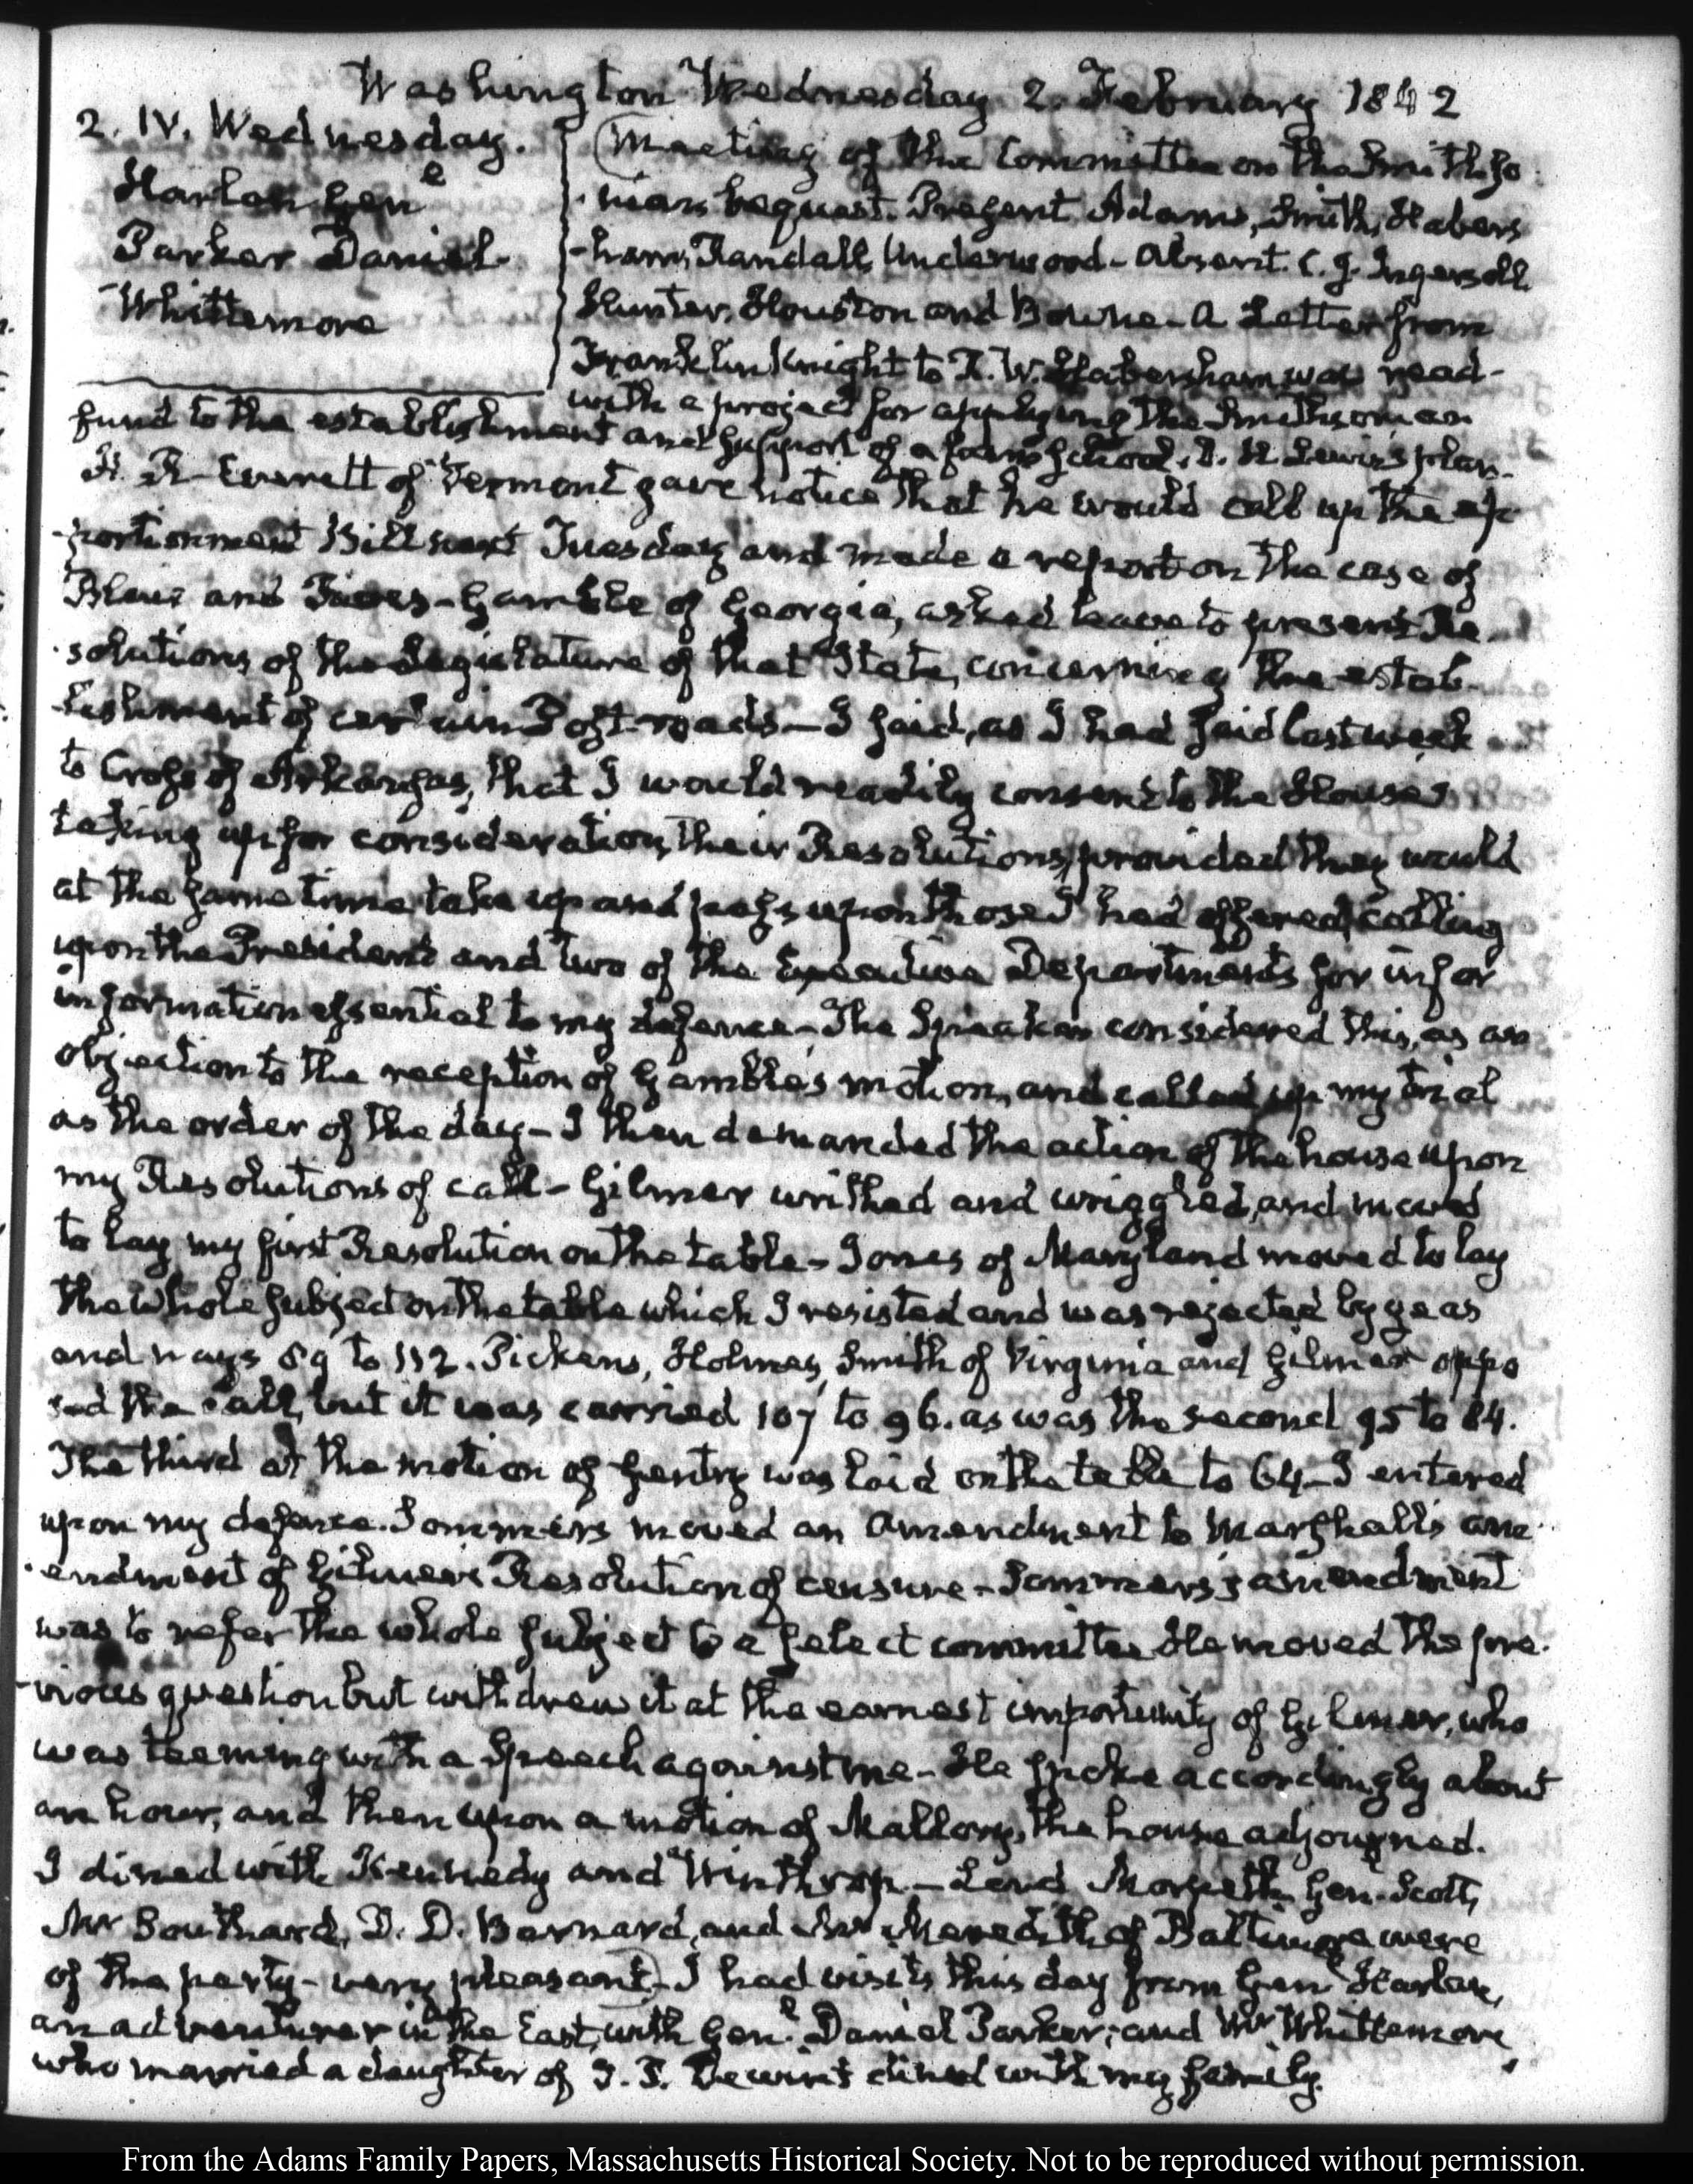 Washington Wednesday 2. February 1842
2. IV. Wednesday.
Harlan Gen.e
Parker Daniel
Whittemore
Meeting of the Committee on the Smithso
-nian bequest. Present Adams, Smith, Habers
-ham, Randall, Underwood - Absent. C. J. Ingersoll
Hunter, Houston and Bowne - A Letter from
Franklin Knight to R. W. Habersham was read -
with a project for applying the Smithsonian
fund to the establishment and support of a farm school. D. H. Lewis's plan -
H. R - Everett of Vermont gave notice that he would call up the ap
-portionment Bill next Tuesday and made a report on the case of
Blair and Rives - Gamble of Georgia, asked leave to present Re
-solutions of the Legislature of that State, concerning the estab
-lishment of certain Post-roads - I said, as I had said last week
to Cross of Arkansas, that I would readily consent to the House's
taking up for consideration, their Resolutions, provided they would
at the same time take up and pass upon those I had offered, calling
upon the President and two of the Executive Departments for infor
information essential to my defence - The Speaker considered this, as an
objection to the reception of Gamble's motion, and called up my trial
as the order of the day - I then demanded the action of the house upon
my Resolutions of call - Gilmer writhed and wriggled, and moved
to lay my first Resolution on the table - Jones of Maryland moved to lay
the whole subject on the table which I resisted and was rejected by yeas
and nays 89 to 112. Pickens, Holmes, Smith of Virginia and Gilmer oppo
sed the call, but it was carried 107 to 96. as was the second 95 to 84.
The third at the motion of Gentry was laid on the table to 64 - I entered
upon my defence. Sommers moved an amendment to Marshall's am
-endment of Gilmer's Resolution of censure - Sommers's amendment
was to refer the whole subject to a select committee He moved the pre
-vious question but withdrew it at the earnest importunity of Gilmer, who
was teeming with a Speech against me - He spoke accordingly about
an hour, and then upon a motion of Mallory, the house adjourned.
I dined with Kennedy and Winthrop - Lord Morpeth Gen.l Scott,
Mr Southard, D. D. Barnard, and Mr Meredith of Baltimore were
of the party - very pleasant - I had visits this day from Gen.l Harlan,
an adventurer in the East, with Gen.l Daniel Parker; and Mr Whittemore
who married a daughter of J. P. Dewint dined with my family.
From the Adams Family Papers, Massachusetts Historical Society. Not to be reproduced without permission.